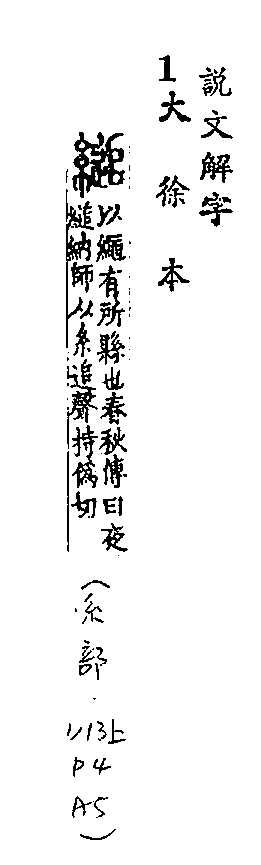 說文解字
1大徐本
縋以繩有所縣也春秋傳曰夜
縋納師从糸追聲持僞切
(糸部.
ㄗ13上
P4
A5)